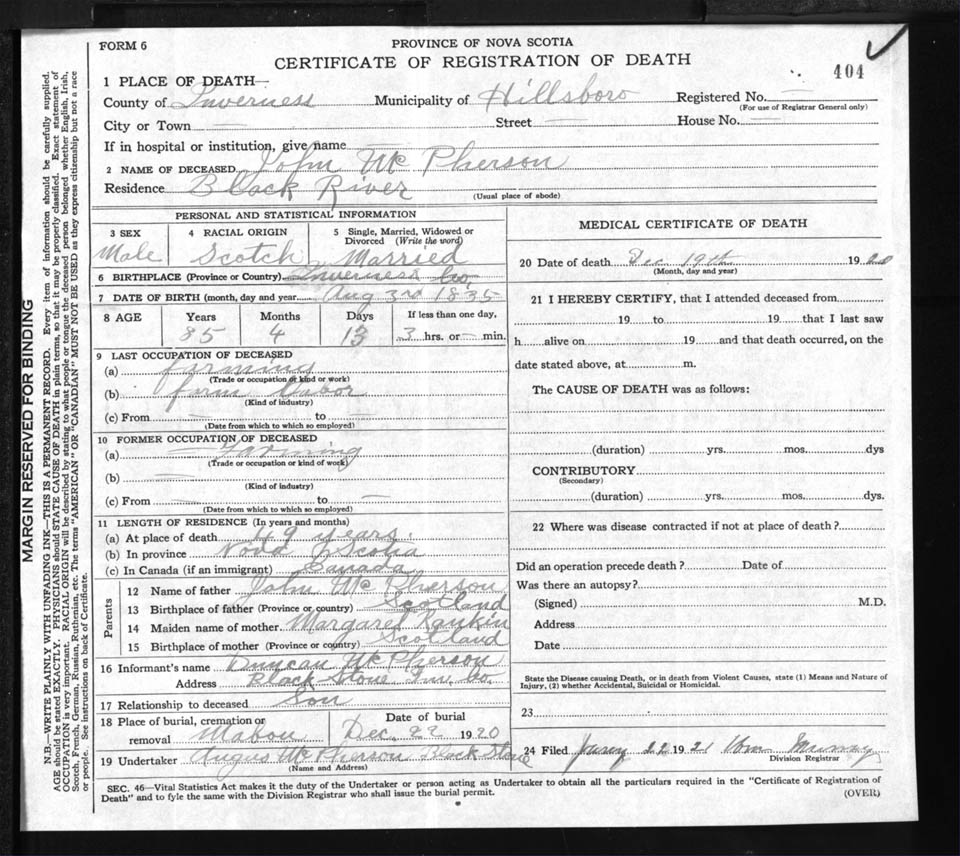 FORM 6
PROVINCE OF NOVA SCOTIA
CERTIFICATE OF REGISTRATION OF DEATH
404
1 PLACE OF DEATH—
County of Inverness Municipality of Hillsboro Registered No. —
(For use of Registrar General only)
City or Town — Street — House No. —
If in hospital or institution, give name —
2 NAME OF DECEASED John McPherson
Residence Black River
(Usual place of abode)
PERSONAL AND STATISTICAL INFORMATION
3 SEX 4 RACIAL ORIGIN 5 Single, Married, Widowed or Divorced (Write the word)
Male Scotch Married
6 BIRTHPLACE (Province or Country) Inverness Co,
7 DATE OF BIRTH (month, day and year) Aug 3rd 1835
8 AGE Years Months Days If less than one day,
85 4 13 3 hrs. or — min.
9 LAST OCCUPATION OF DECEASED
(a) farming
(Trade or occupation or kind or work)
(b) farm Labor
(Kind of industry)
(c) From — to —
(Date from which to which so employed)
10 FORMER OCCUPATION OF DECEASED
(a) Farming
(Trade or occupation or kind of work)
(b) —
(Kind of industry)
(c) From — to —
(Date from which to which so employed)
11 LENGTH OF RESIDENCE (In years and months)
(a) At place of death 49 years.
(b) In province Nova Scotia
(c) In Canada (if an immigrant) Canada
Parents
12 Name of father John McPherson
13 Birthplace of father (Province or country) Scotland
14 Maiden name of mother Margaret Rankin
15 Birthplace of mother (Province or country) Scotland
16 Informant's name Duncan McPherson
Address Black Stone Inv. Co.
17 Relationship to deceased Son
18 Place of burial, cremation or removal Mabou Date of burial Dec. 22 1920
19 Undertaker Angus McPherson Black Stone
(Name and Address)
MEDICAL CERTIFICATE OF DEATH
20 Date of death Dec 19th 1920
(Month, day and year)
21 I HEREBY CERTIFY, that I attended deceased from
19 to 19 that I last saw
h alive on 19 and that death occurred, on the
date stated above, at m.
The CAUSE OF DEATH was as follows:
(duration) yrs. mos. dys
CONTRIBUTORY
(Secondary)
(duration) yrs. mos. dys.
22 Where was disease contracted if not at place of death?
Did an operation precede death? Date of
Was there an autopsy?
(Signed) M.D.
Address
Date
State the Disease causing Death, or in death from Violent Causes, state (1) Means and Nature of
Injury, (2) whether Accidental, Suicidal or Homicidal.
23
24 Filed 22 1921 Wm Murray
Division Registrar
SEC. 46—Vital Statistics Act makes it the duty of the Undertaker or person acting as Undertaker to obtain all the particulars required in the "Certificate of Registration of
Death" and to fyle the same with the Division Registrar who shall issue the burial permit.
(OVER)
MARGIN RESERVED FOR BINDING
N.B.—WRITE PLAINLY WITH UNFADING INK—THIS IS A PERMANENT RECORD. Every item of information should be carefully supplied.
AGE should be stated EXACTLY. PHYSICIANS should STATE CAUSE OF DEATH in plain terms, so that it may be properly classified. Exact statement of
OCCUPATION is very important. RACIAL ORIGIN will be described by stating to what people or tongue the deceased person belonged whether English, Irish,
Scotch, French, German, Russian, Ruthenian, etc. The terms "AMERICAN" OR "CANADIAN" MUST NOT BE USED as they express citizenship but not a race
or people. See instructions on back of Certificate.